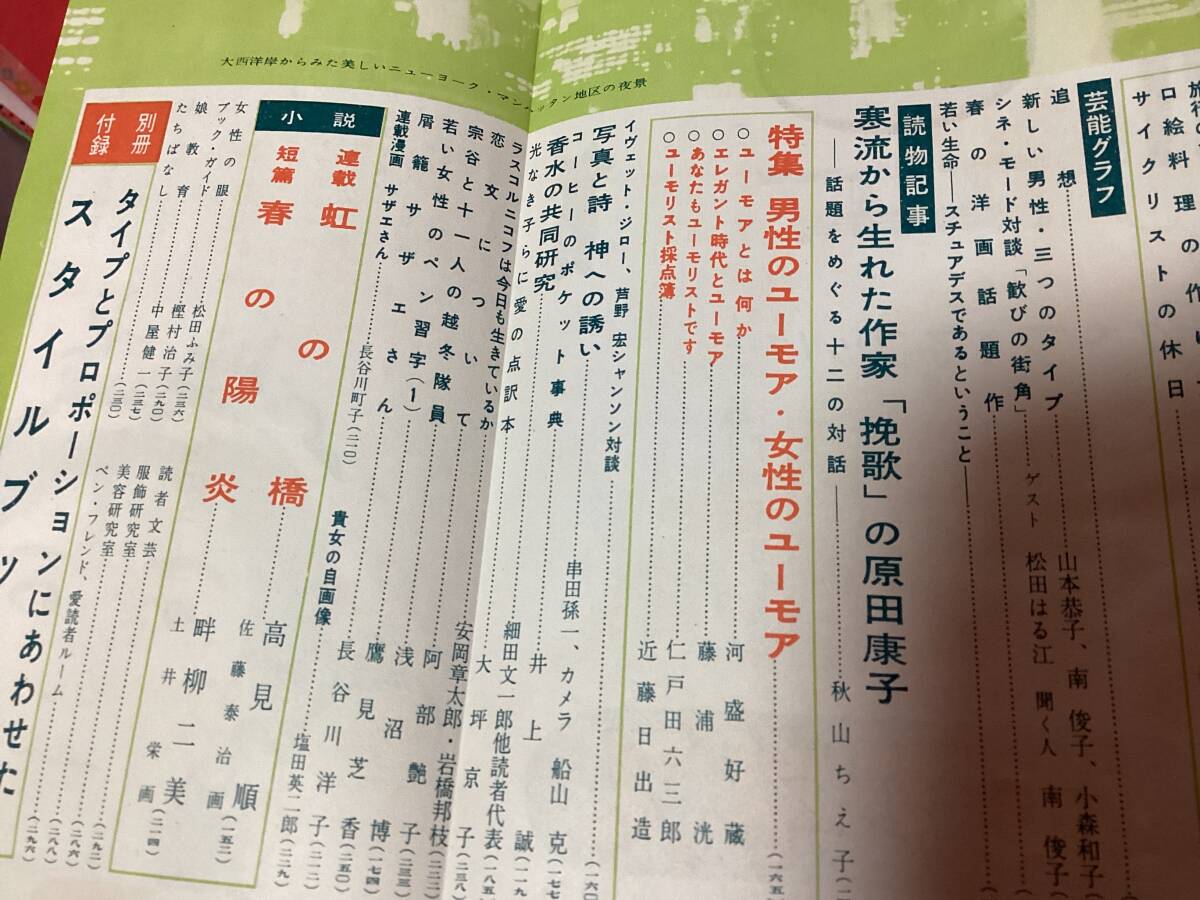 大西洋岸からみた美しいニューヨーク・マンハッタン地区の夜景
サイクリストの休日
ロ絵料理の作り
芸能グラフ
追想
山本恭子、南俊子、小森和子
新しい男性・三つのタイプ
シネ・モード対談「歓びの街角」……ゲスト 松田はる江 聞く人 南俊子
春の洋画話題作
若い生命―スチュアデスであるということ―
読物記事
寒流から生れた作家「挽歌」の原田康子
―話題をめぐる十二の対話―
秋山ちえ子
特集 男性のユーモア・女性のユーモア
○ユーモアとは何か 河盛好蔵
○エレガント時代とユーモア 藤浦洸
○あなたもユーモリストです 仁戸田六三郎
○ユーモリスト採点簿 近藤日出造
イヴェット・ジロー、芦野 宏シャンソン対談
写真と詩 神への誘い 串田孫一、カメラ 船山 克
コーヒーのポケット事典
香水の共同研究 井上誠
光なき子らに愛の点訳本 細田文一郎他読者代表
ラスコルニコフは今日も生きているか 大坪京子(二三八)
恋文について 安岡章太郎・岩橋邦枝
宗谷と十一人の越冬隊員 阿部艶子(二三三)
若い女性のペン習字(1) 浅沼博(一七四)
屑籠サザエさん 鷹見芝香(二五〇)
連載漫画 サザエさん 長谷川町子(二一〇)
長谷川洋子
貴女の自画像 塩田英二郎(二二九)
小説
連載 虹の橋 高見順(一五二)
佐藤泰治画
短篇 春の陽炎 畔柳二美(二一四)
土井栄画
女性の眼 松田ふみ子(二三六)
ブック・ガイド
娘教育 樫村治子(二九〇)
たちばなし 中屋健一(二三七)
読者文芸
服飾研究室
美容研究室
ペン・フレンド、愛読者ルーム
別冊付録
タイプとプロポーションにあわせた
スタイルブッ